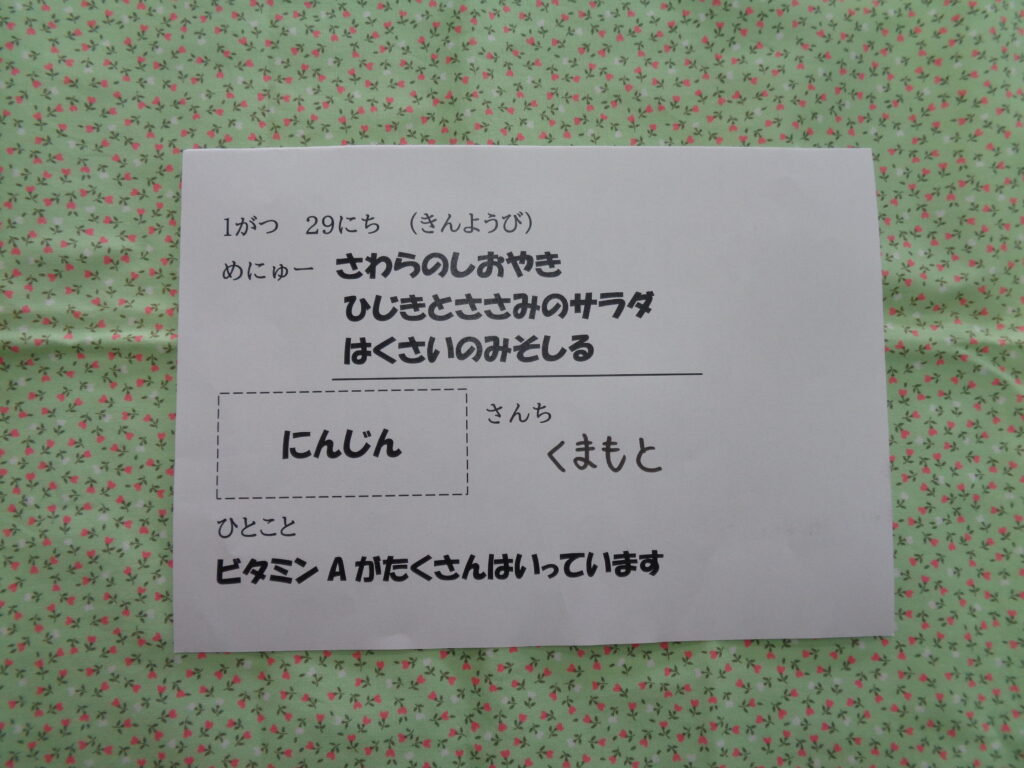 1がつ　29にち　（きんようび）
めにゅー　さわらのしおやき
ひじきとささみのサラダ
はくさいのみそしる
にんじん
さんち
くまもと
ひとこと
ビタミン A がたくさんはいっています